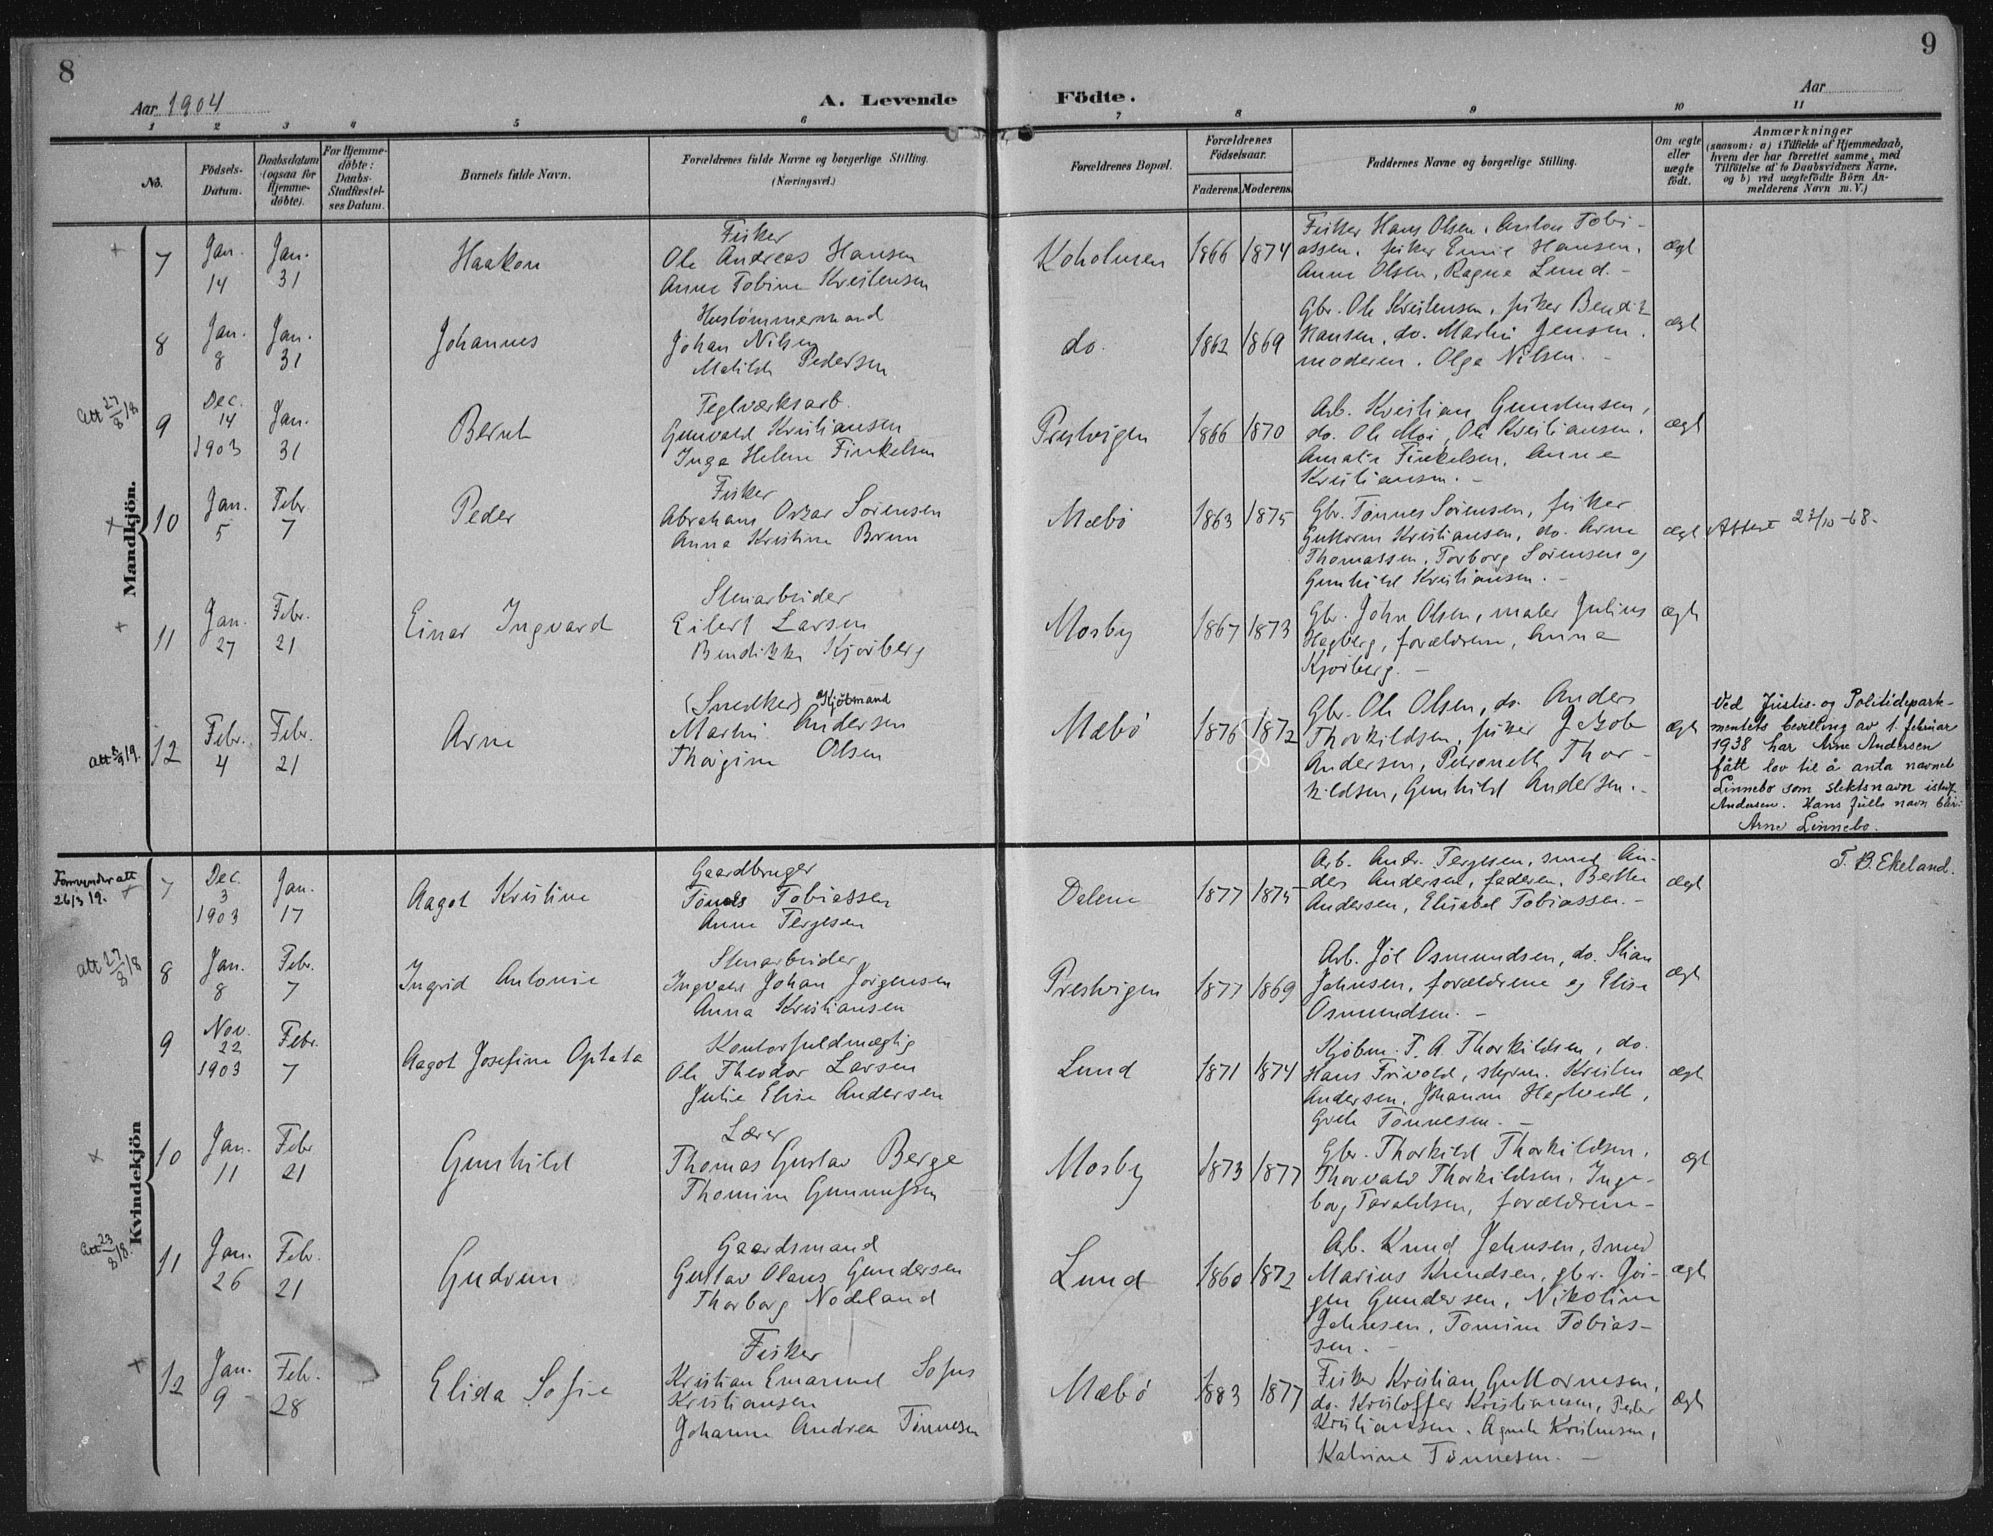 8
9
Aar 1904
A. Levende Födte.
Aar
1 2 3 4 5 6 7 8 9 10 11
No.
Födsels-Datum.
Daabsdatum (ogsaa for Hjemme-döbte).
For Hjemme-döbte: Daabs-Stadfæstel-ses Datum.
Barnets fulde Navn.
Forældrenes fulde Navne og borgerlige Stilling. (Næringsvei.)
Forældrenes Bopæl.
Forældrenes Födselsaar.
Faderens. Moderens.
Faddernes Navne og borgerlige Stilling.
Om ægte eller uægte født.
Anmærkninger
(saasom: a) i Tilfælde af Hjemmedaab,
hvem der har forrettet samme, med
Tilföielse af to Daabsvidners Navne,
og b) ved uægtefödte Börn An-
melderens Navn m. V.)
Mandkjön.
7
Jan. 14
Jan. 31
Haakon
Fisker
Ole Andreas Hansen
Anne Tobine Kristensen
Koholmen
1866 1874
Fisker Hans Olsen, Anton Tobi-
assen, fisker Emil Hansen,
Anne Olsen, Ragna Lund. -
ægt
8
Jan. 8
Jan. 31
Johannes
Hustømmermand
Johan Nilsen
Matilde Pedersen
do.
1862 1869
Gbr. Ole Kristensen, fisker Bendix
Hansen, do. Martin Jensen,
moderen, Olga Nilsen. -
ægt
Att 27/8 18
9
Dec. 14 1903
Jan. 31
Bernt
Teglværksarb.
Gunvald Kristiansen
Inga Helene Finkelsen
Prestvigen
1866 1870
Arb. Kristian Gundersen,
do. Ole Moi, Ole Kristiansen,
Amalie Finkelsen, Anne
Kristiansen. -
ægt
10
Jan. 5
Febr 7
Peder
Fisker
Abraham Oskar Sörensen
Anna Kristine Brunn
Mæbö
1863 1875
Gbr. Tönnes Sörensen, fisker
Guttorm Kristiansen, do. Arne
Thomassen, Torborg Sörensen og
Gunhild Kristiansen. -
ægt
Attest 23/10-68.
11
Jan. 27
Febr. 21
Einar Ingvard
Stenarbeider
Eilert Larsen
Bendikke Kjörberg
Mosby
1867 1873
Gbr. John Olsen, maler Julius
Hagberg, forældrene, Anna
Kjörberg. -
ægt
Att 8/9 19.
12
Febr. 4
Febr. 21
Arne
(Snedker) Kjöbmand
Martin Andersen
Thorgine Olsen
Mæbö
1876 1872
Gbr. Ole Olsen, do. Anders
Thorkildsen, fisker Jakob
Andersen, Petronelle Thor-
kildsen, Gunhild Andersen. -
ægt
Ved Justis- og Politidepart-
mentets bevilling av 1. februar
1938 har Arne Andersen
fått lov til å anta navnet
Linnebo som slektsnavn istf.
Andersen. Hans fulle navn blir:
Arne Linnebo.
T. B. Ekeland.
Kvindekjön
Formynder att 26/3 19.
7
Dec. 3 1903
Jan. 17
Aagot Kristine
Gaardbruger
Tönnes Tobiassen
Anne Terjesen
Dalene
1877 1875
Arb. Andr. Terjesen, smed An-
ders Andersen, faderen, Berthe
Andersen, Elisabet Tobiassen. -
ægt
att 27/8 18
8
Jan. 8
Febr. 7
Ingrid Antonie
Stenarbeider
Ingvald Johan Jörgensen
Anna Kristiansen
Prestvigen
1877 1869
Arb. Jöl Osmundsen, do. Stian
Jahnsen, forældrene og Elise
Osmundsen. -
ægt
9
Nov. 22 1903
Febr. 7
Aagot Josefine Optata
Kontorfuldmægtig
Ole Theodor Larsen
Julie Elise Andersen
Lund
1871 1874
Kjöbm. T. A. Thorkildsen, do.
Hans Frivold, styrm. Kristen
Andersen, Johanne Hegtvedt,
Grete Tönnesen. -
ægt
10
Jan. 11
Febr 21
Gunhild
Lærer
Thomas Gustav Berge
Thomine Gunnufsen
Mosby
1873 1877
Gbr. Thorkild Thorkildsen,
Thorvald Thorkildsen, Inge-
borg Taraldsen, forældrene -
ægt
Att 23/8 18.
11
Jan. 26
Febr. 21
Gudrun
Gaardsmand
Gustav Olaus Gundersen
Thorborg Nodeland
Lund
1860 1872
Arb. Knud Jahnsen, smed
Marius Knudsen, gbr. Jör-
gen Gundersen, Nikoline
Jahnsen, Tomine Tobias-
sen. -
ægt
12
Jan. 9
Febr. 28
Elida Sofie
Fisker
Kristian Emanuel Sofus
Kristiansen
Johanne Andrea Tönnesen
Mæbö
1883 1877
Fisker Kristian Guttormsen,
do. Kristoffer Kristiansen, Peder
Kristiansen, Agnete Kristensen,
Katrine Tönnesen. -
ægt